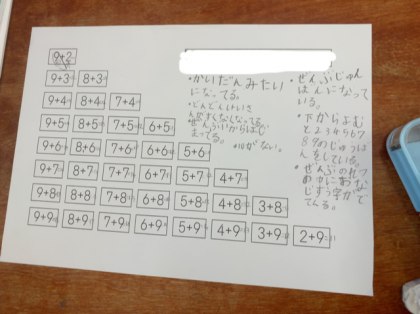 9+2
9+3 8+3
9+4 8+4 7+4
9+5 8+5 7+5 6+5
9+6 8+6 7+6 6+6 5+6
9+7 8+7 7+7 6+7 5+7 4+7
9+8 8+8 7+8 6+8 5+8 4+8 3+8
9+9 8+9 7+9 6+9 5+9 4+9 3+9 2+9
・かいだんみたい
になってる。
・どんどんけいさ
ってる。
・10がない。
・ぜんぶじゅん
ばんになって
いる。
・下からよむ
と234567
89のじゅんば
んをしている。
・ぜんぶの
じすう字が